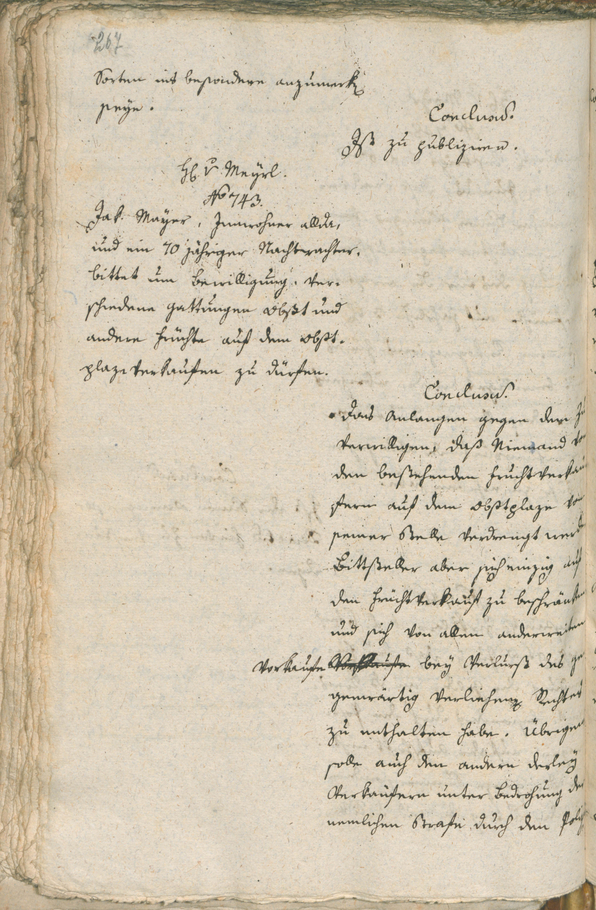 267
Sorten insbesondere anzumerken
seye.
Conclusū.
Ist zu publiziren.
H. v. Meyrl.
No 743.
Jak. Mayer, Innwohner allda,
und ein 70 jähriger Nachtwachter.
bittet um Bewilligung, ver-
schiedene Gattungen Obst und
andere Früchte auf dem Obst-
plaze verkaufen zu dürfen.
Conclusū.
Das Anlangen gegen dem zu
verwilligen, daß Niemand von
den bestehenden Fruchtverkäu
fern auf dem Obstplaze von
seiner Stelle verdrengt werde
Bittsteller aber sich einzig auf
den Früchtverkauf zu beschränken
und sich von allen anderweiten
Vorkaufe bey Verlurst des ge
genwärtig verliehenen Rechtes
zu enthalten habe. Übrigens
solle auch den andern derley
Verkäufern unter Bedrohung der
nemlichen Strafe durch den